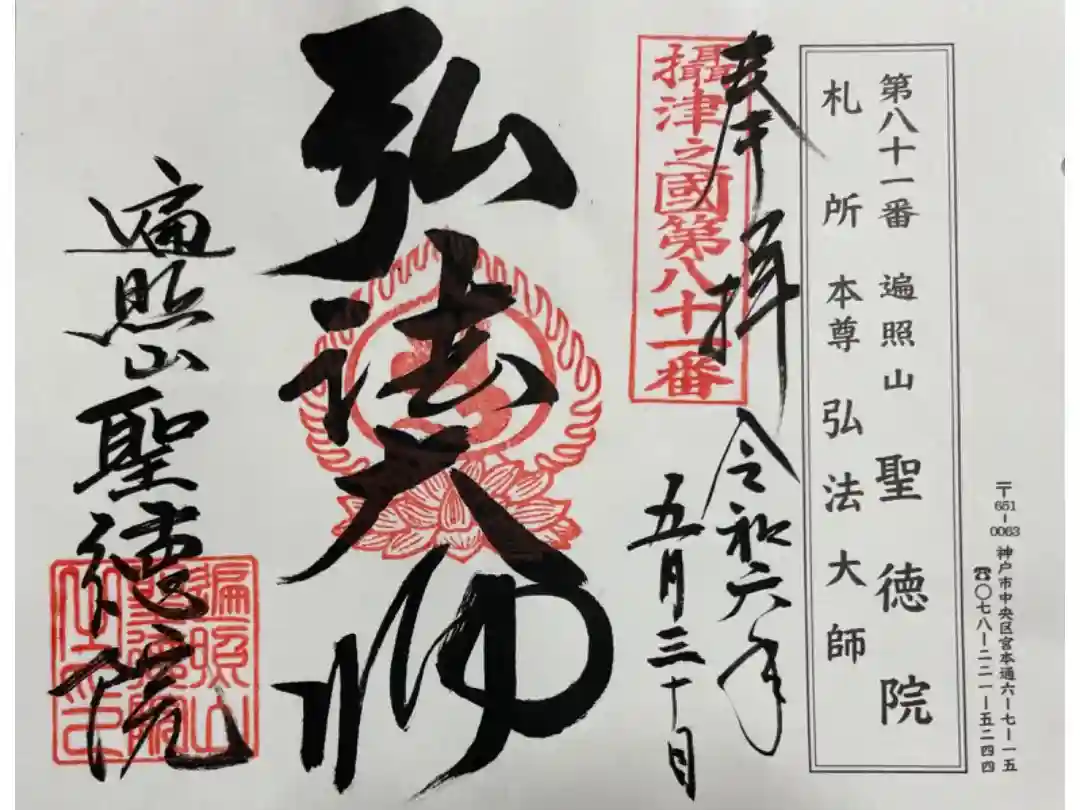 〒651-0063 神戸市中央区宮本通六-七-一五
☎〇七八-二二一-五二四四
第八十一番 遍照山 聖徳院
札所本尊弘法大師
奉拝 令和六年
攝津之國第八十一番
五月三十日
弘法大師
遍照山聖徳院